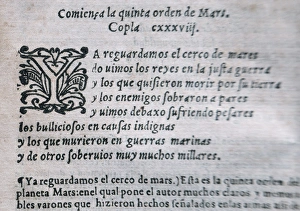 Comiença la quinta orden de Mars.
Copla cxxxviij.
YA reguardamos el cerco de mares
do uimos los reyes en la justa guerra
y los que quisieron morir por su tierra
y los enemigos sobraron a pares
y uimos debaxo sufriendo pesares
los bulliciosos en causas indignas
y los que murieron en guerras marinas
y de otros soberuios muy muchos millares.
¶ Ya reguardamos el cerco de mars.) Esta es la quinta orden del
planeta Mars: enel qual pone el autor muchos claros y
bles varones que hizieron hechos señalados en las armas